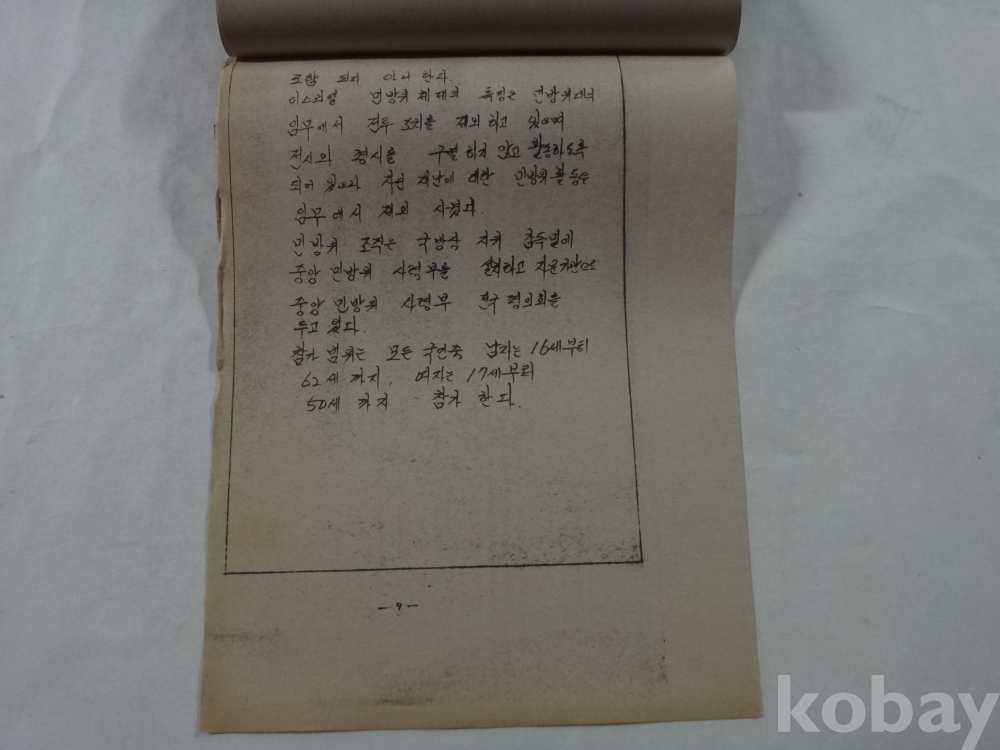 포함 되지 아니 한다.
이스라엘 민방위 체제의 특징은 민방위대의
임무에서 전투 조치를 제외 하고 있으며
전시와 평시를 구별 하지 않고 활동하도록
되어 있으나 자연 재난에 대한 민방위 활동은
임무에서 제외 시켰다.
민방위 조직은 국방상 지휘 감독별에
중앙 민방위 사령부를 설치하고 자문기관으로
중앙 민방위 사령부 전국 평의회를
두고 있다.
참가 범위는 모든 국민중 남자는 16세부터
62세 까지, 여자는 17세부터
50세 까지 참가 한다.
- 9 -
kobay